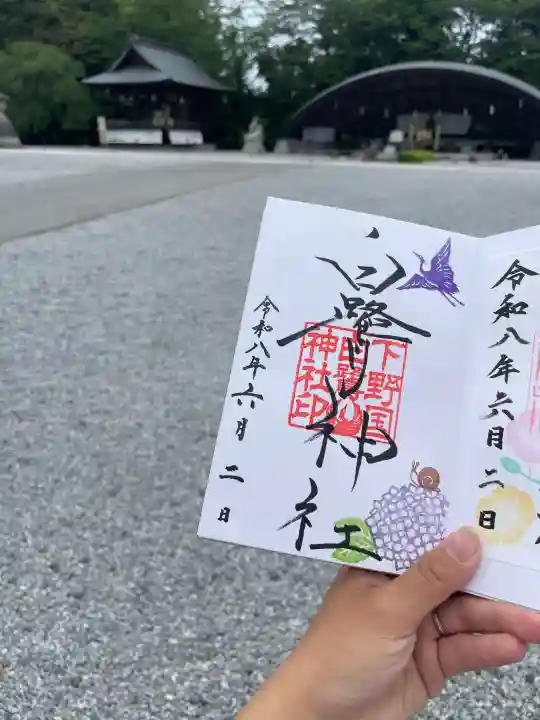 令和八年六月二日
白鷺神社
下野国
白鷺
神社印
令和八年六月二日